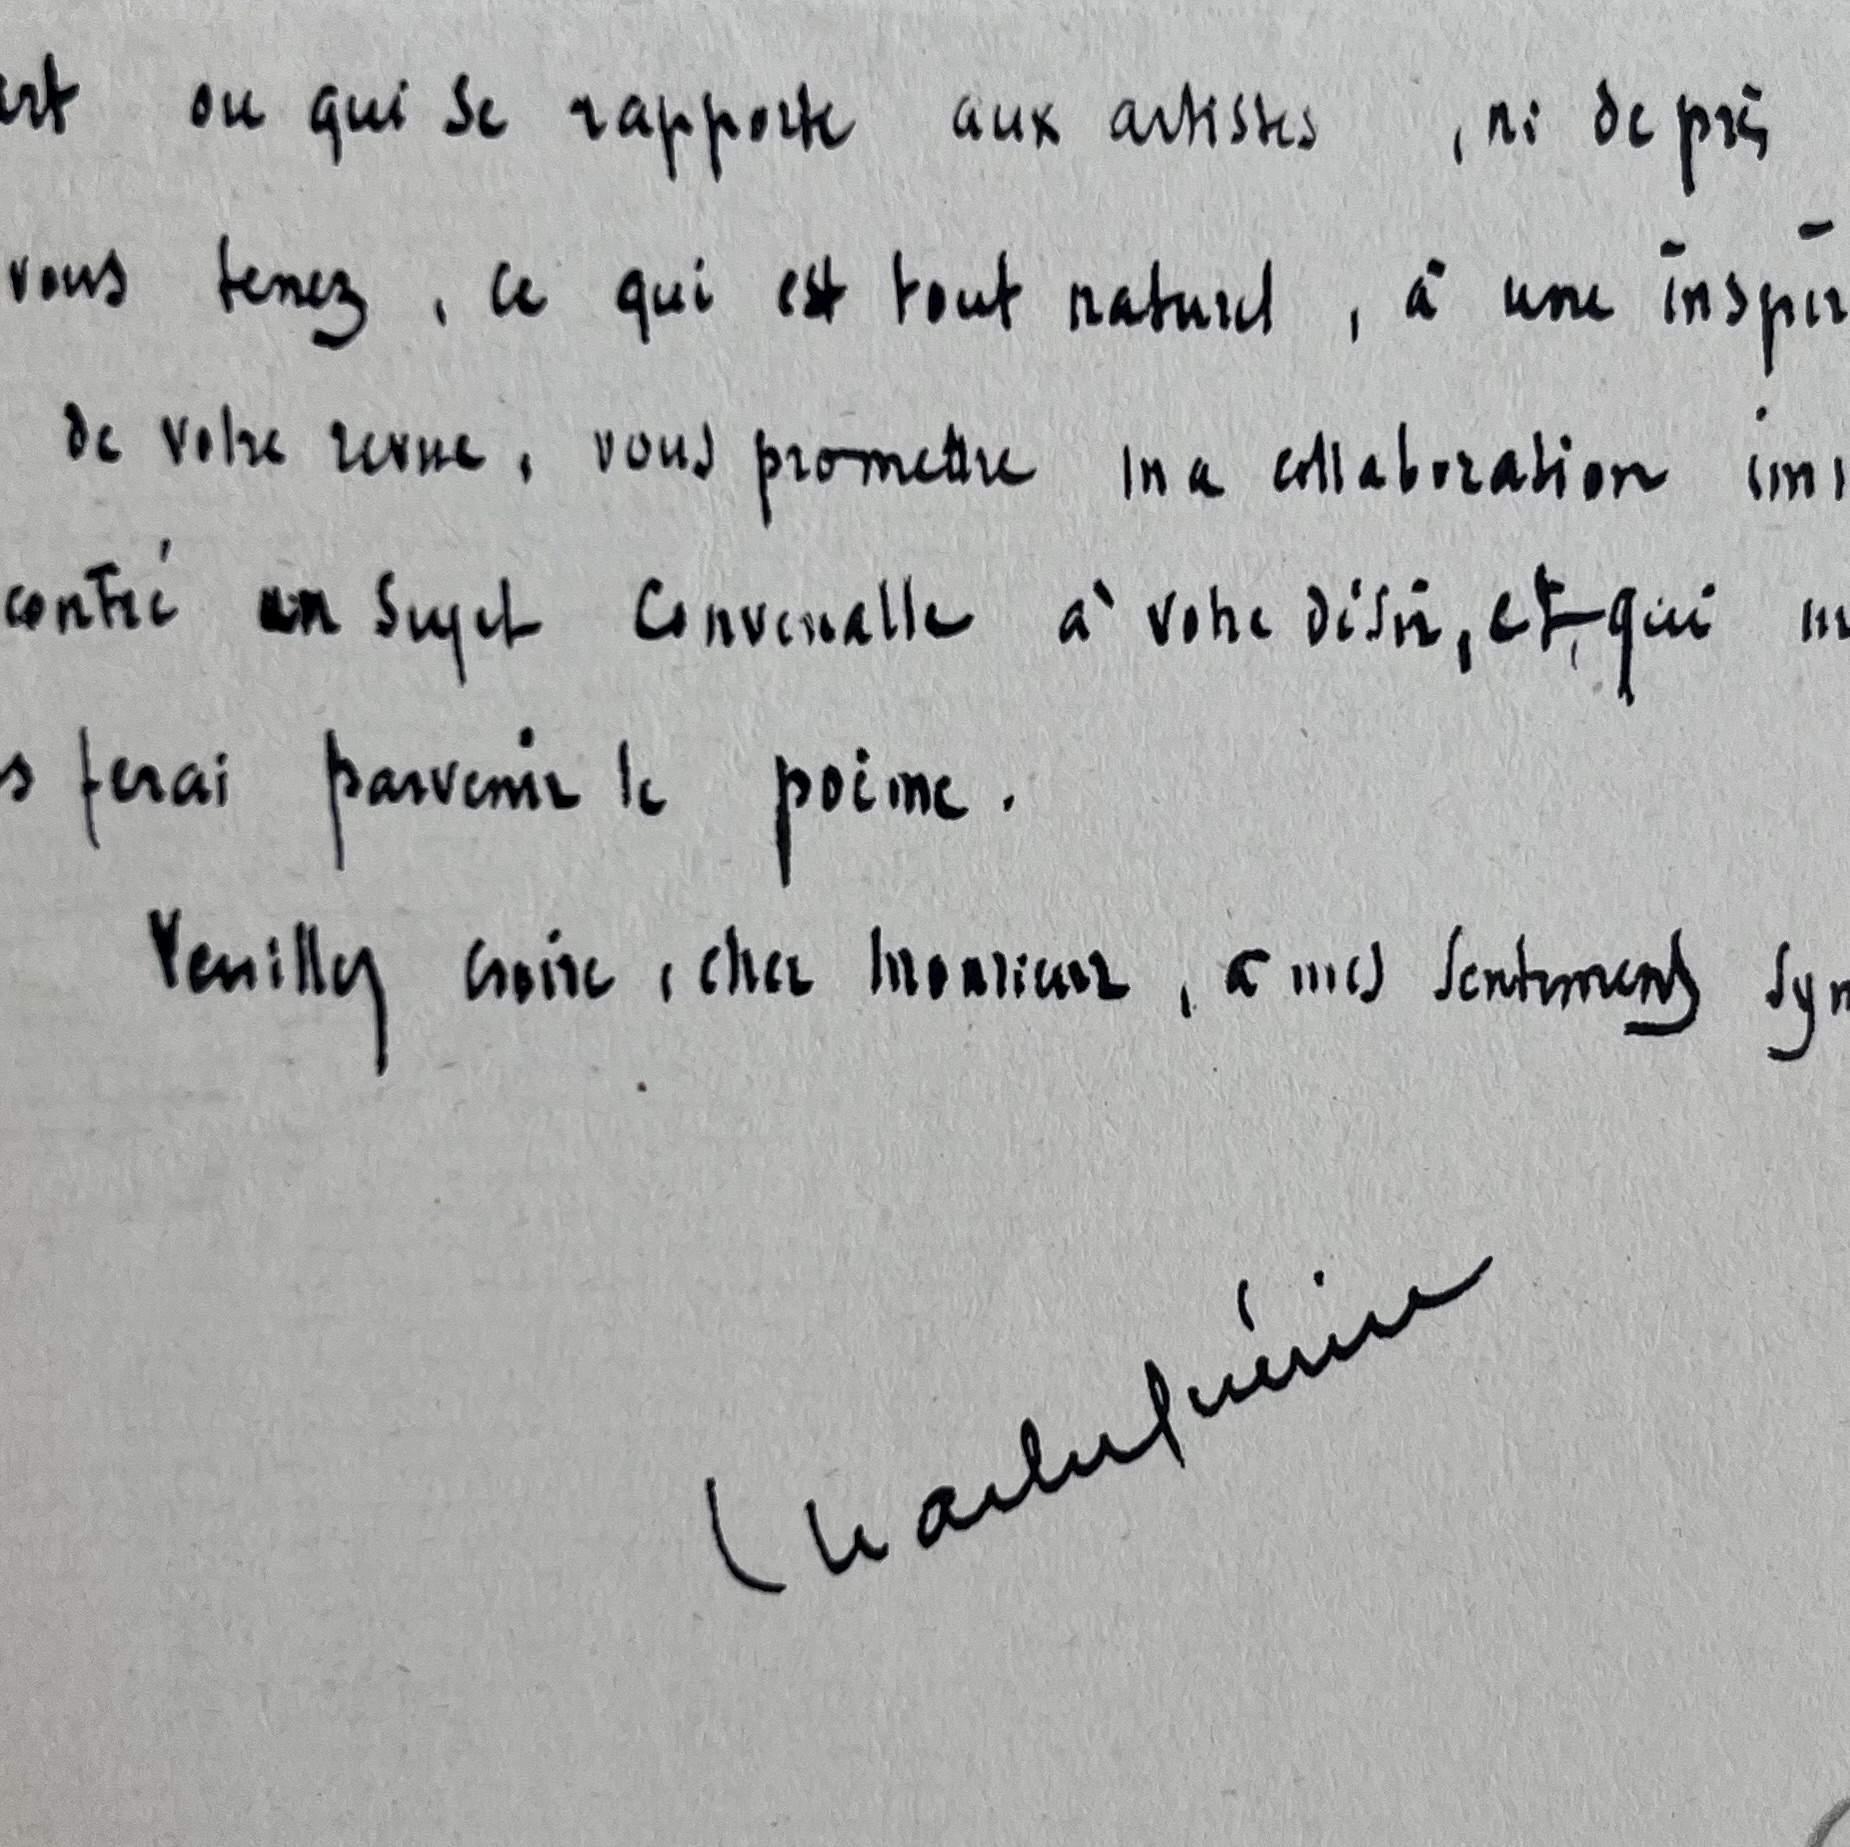 art ou qui se rapporte aux artistes , ni de près
vous tenez , ce qui est tout naturel , à une inspir
de votre revue , vous promettre ma collaboration imm
contré un sujet convenable à votre désir, et, qui m
s ferai parvenir le poème .
Veuillez croire , cher Monsieur , à mes sentiments sym
Charles Guérin